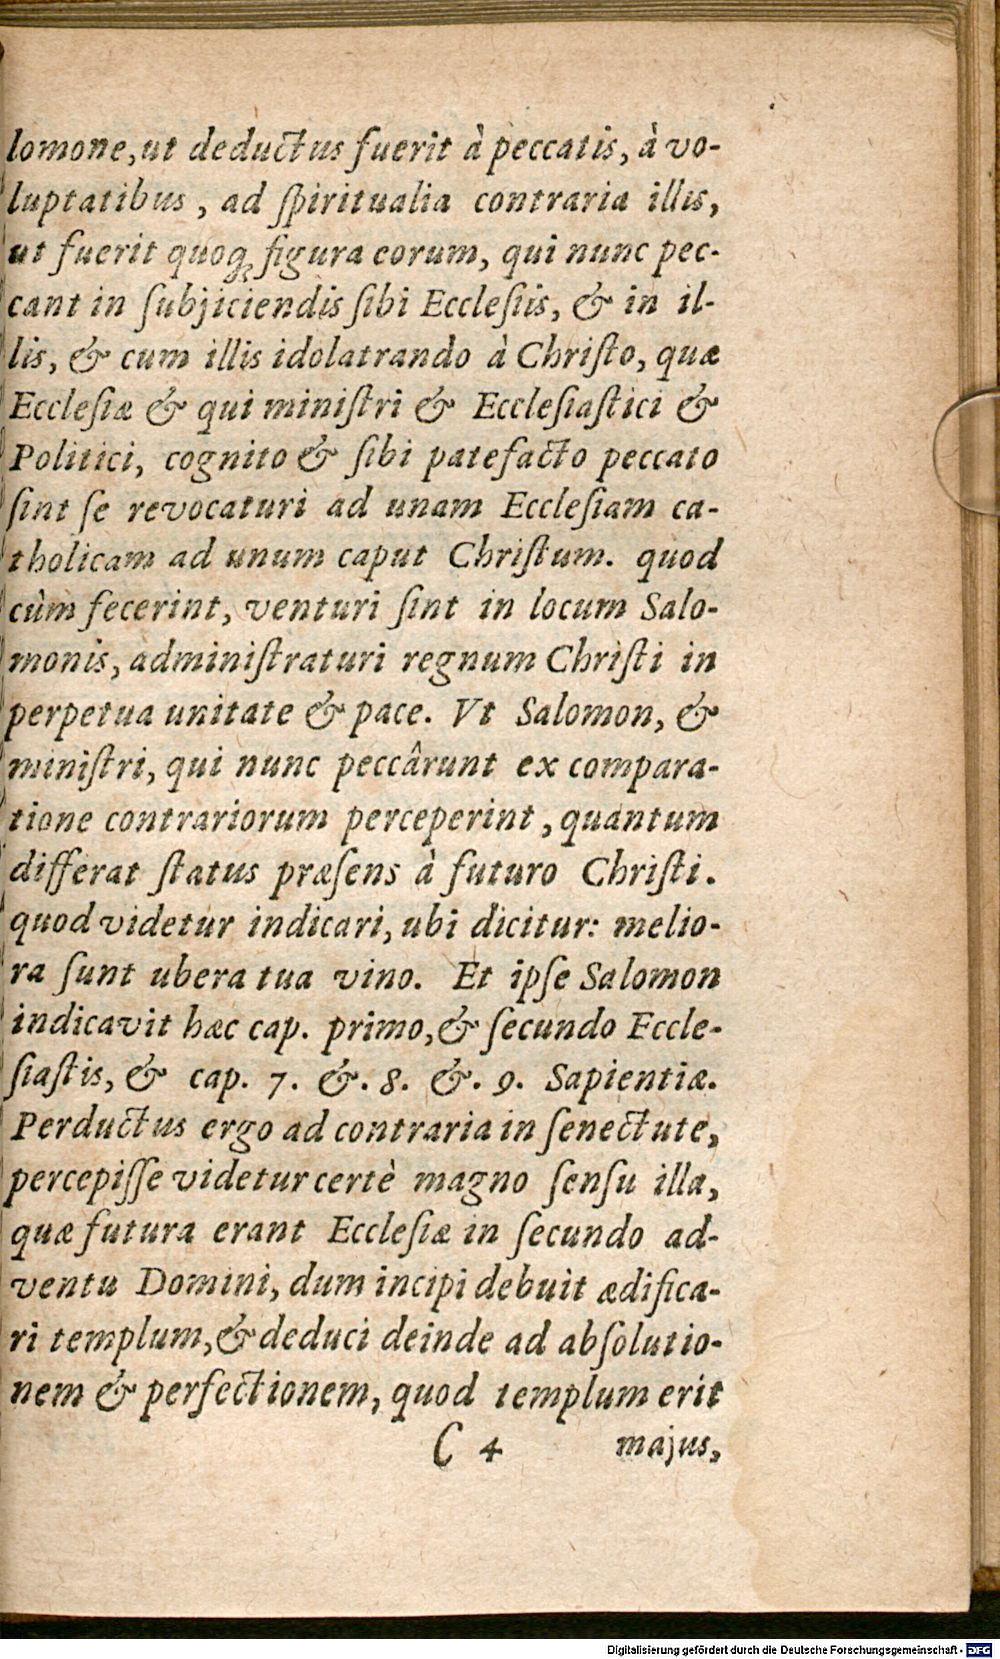 lomone, ut deductus fuerit à peccatis, à vo-
luptatibus, ad ſpiritualia contraria illis,
ut fuerit quoqꝫ figura eorum, qui nunc pec-
cant in ſubjiciendis ſibi Eccleſiis, & in il-
lis, & cum illis idolatrando à Chriſto, quæ
Eccleſiæ & qui miniſtri & Eccleſiaſtici &
Politici, cognito & ſibi patefacto peccato
ſint ſe revocaturi ad unam Eccleſiam ca-
tholicam ad unum caput Chriſtum. quod
cùm fecerint, venturi ſint in locum Salo-
monis, adminiſtraturi regnum Chriſti in
perpetua unitate & pace. Vt Salomon, &
miniſtri, qui nunc peccârunt ex compara-
tione contrariorum perceperint, quantum
differat ſtatus præſens à futuro Chriſti.
quod videtur indicari, ubi dicitur: melio-
ra ſunt ubera tua vino. Et ipſe Salomon
indicavit hæc cap. primo, & ſecundo Eccle-
ſiaſtis, & cap. 7. &. 8. &. 9. Sapientiæ.
Perductus ergo ad contraria in ſenectute,
percepiſſe videtur certè magno ſenſu illa,
quæ futura erant Eccleſiæ in ſecundo ad-
ventu Domini, dum incipi debuit ædifica-
ri templum, & deduci deinde ad abſolutio-
nem & perfectionem, quod templum erit
C 4 majus,
Digitalisierung gefördert durch die Deutsche Forschungsgemeinschaft - DFG